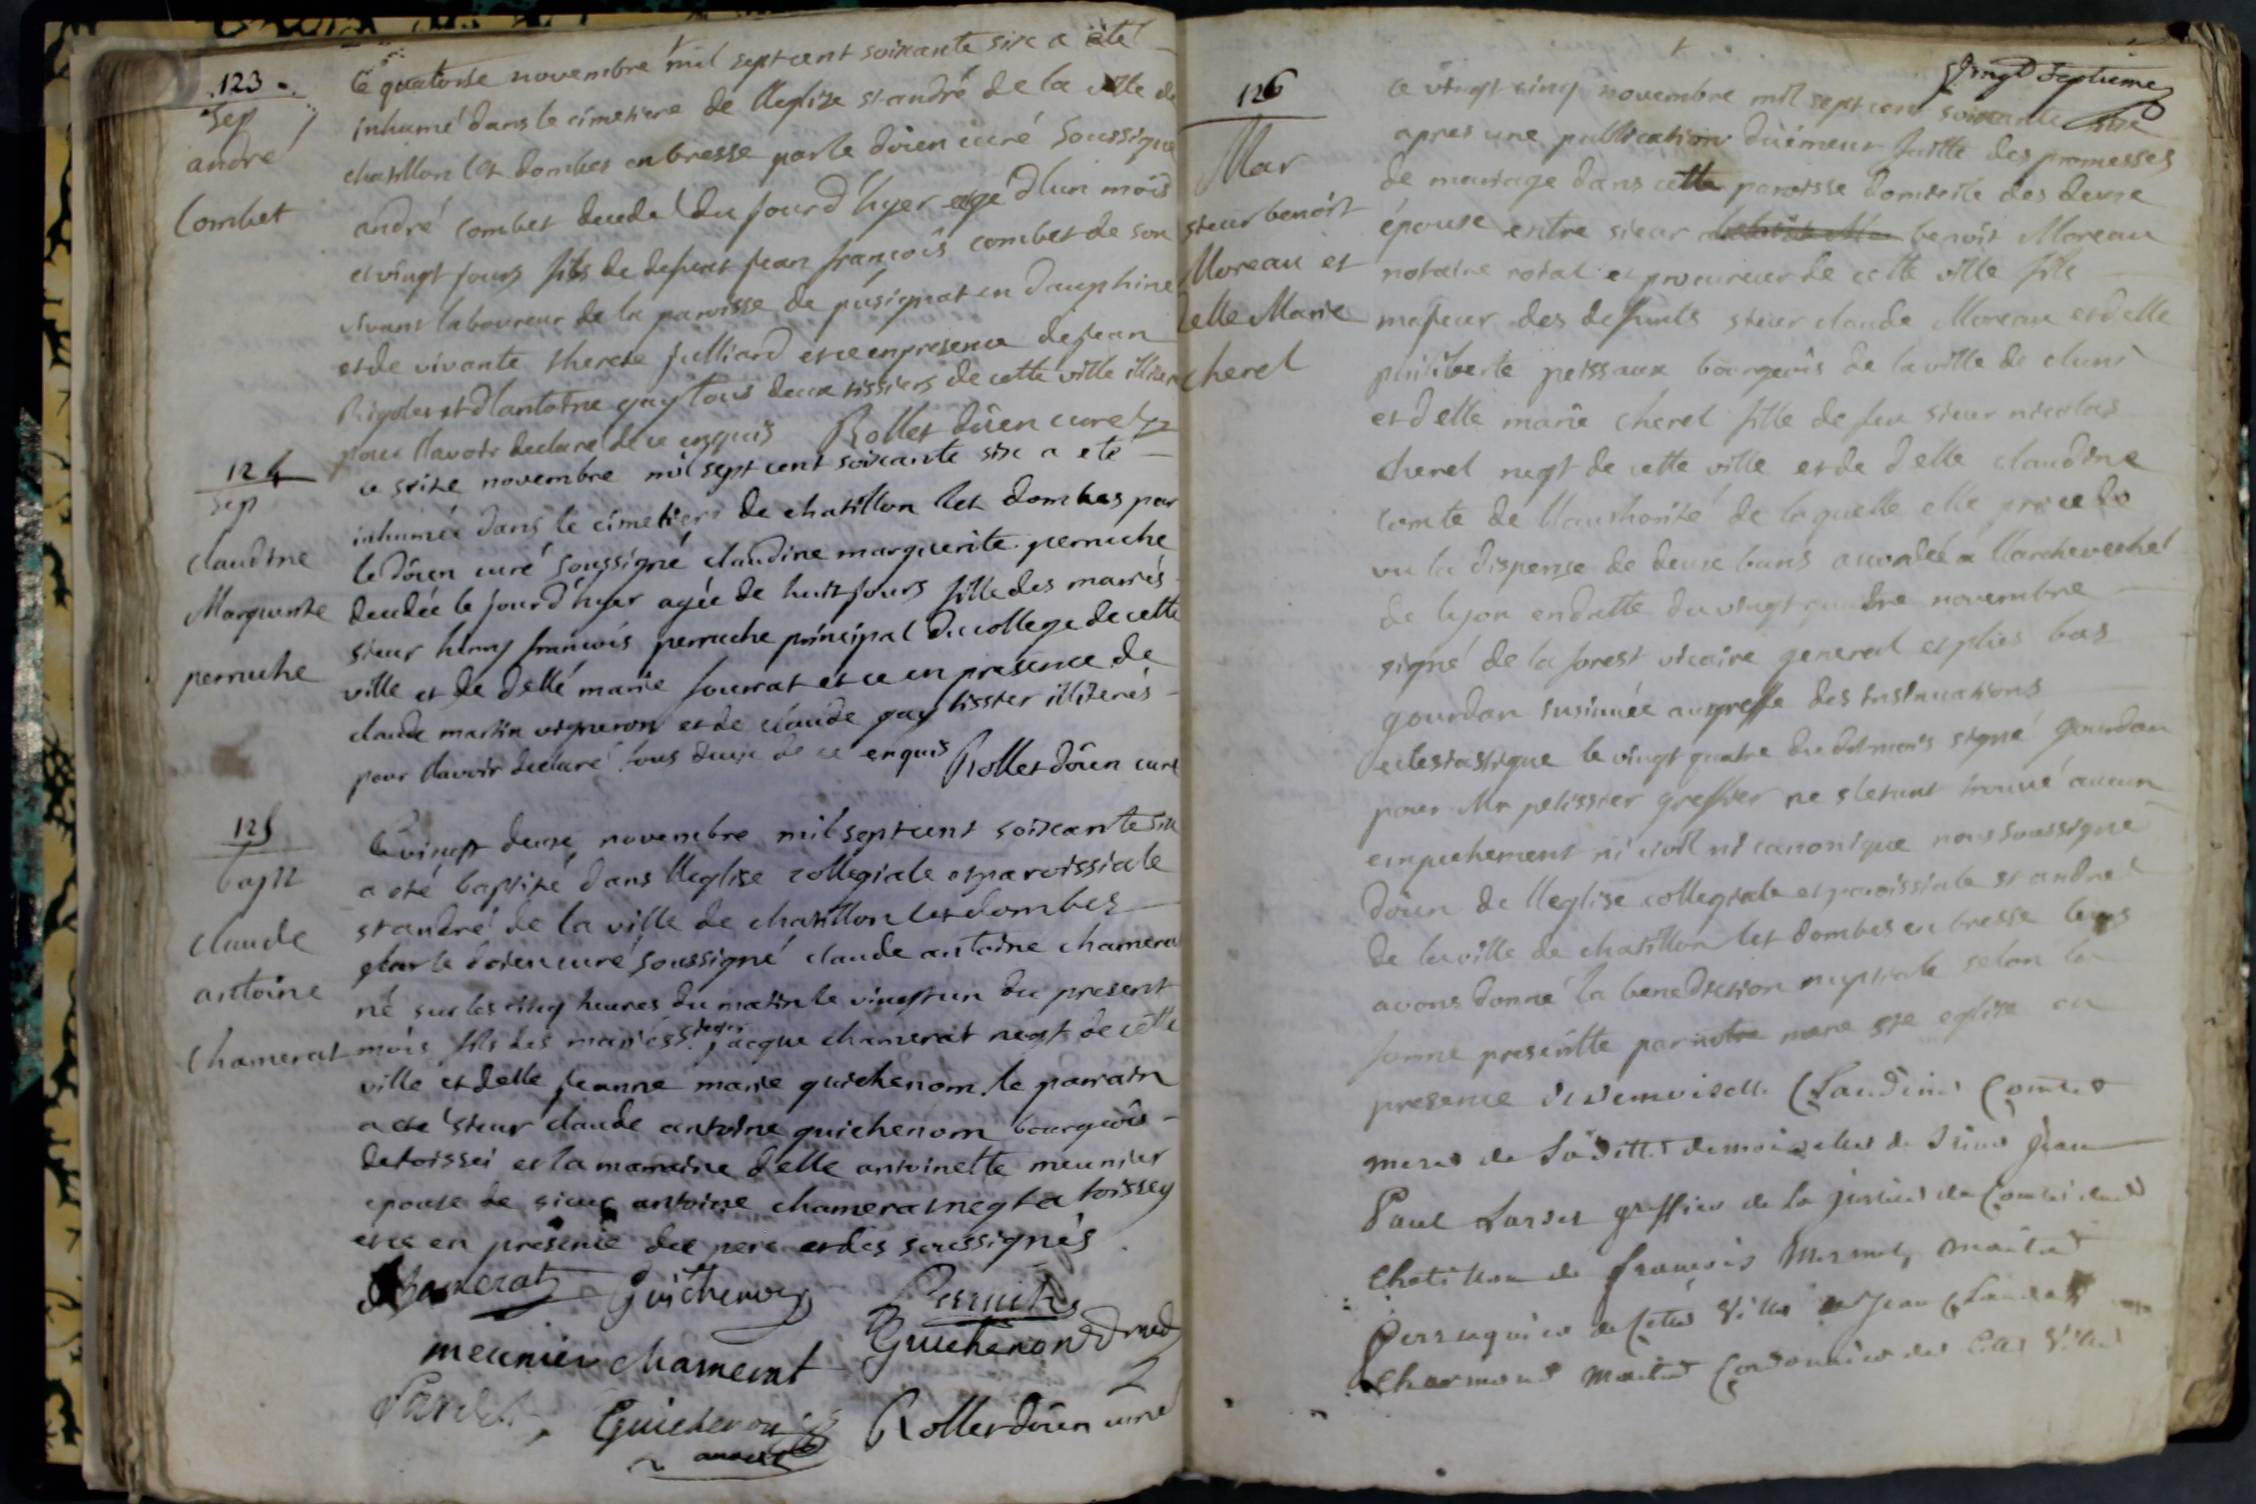 123
Sep
andré
Combet
ce quatorse novembre mil sept cent soixante six a èté
inhumé dans le cimetiere de lleglize st andré de la ville de
chatillon les dombes en bresse par le doien curé soussigné
andré combet decedé du jourd'hyer agé d'un mois
et vingt jours fils de defunt jean françois combet de son
vivant laboureur de la paroisse de pusignat en dauphine
et de vivante therese julliard et ce en presence de jean
Rigolet et d'antoine gay tous deux tissiers de cette ville
pour l'avoir declaré de ce enquis Rollet doien curé
124
Sep
claudine
Marguerite
perruche
ce seize novembre mil sept cent soixante six a eté
inhumée dans le cimetiere de chatillon les dombes par
le doien curé soussigné claudine marguerite perruche
decedée le jourd'hyer agée de huit jours fille des mariés
sieur henry francois perruche principal du college de cette
ville et de d'elle marie fourrat et ce en presence de
claude martin vigneron et de claude gay tissier illiterés
pour l'avoir declaré tous deux de ce enquis Rollet doien curé
125
bapt
claude
antoine
Chamerat
ce vingt deux novembre mil sept cent soixante six
a eté baptisé dans lleglise collegiale et paroissiale
st andré de la ville de chatillon les dombes
par le doien curé soussigné claude antoine chamerat
né sur les cinq heures du matin le vingt un du present
mois fils des mariés s. jacque chamerat negt de cette
ville et delle jeanne marie guichenom le parrain
a eté sieur claude antoine guichenom bourgeois
de toissei et la marraine delle antoinette meunier
epouse de sieur antoine chamerat negt a toissey
et ce en presence du pere et des soussignés
Chamerat Guichenon
meunier chamerat Guichenon
Guichenon Rollet doien curé
126
Mar
sieur benoit
Moreau et
delle Marie
cherel
vingt septieme
ce vingt cinq novembre mil sept cent soixante six
apres une publication duement faitte des promesses
de mariage dans cette paroisse domicile des deux
époux entre sieur benoit Moreau
notaire roial et procureur de cette ville fils
majeur des defunts sieur claude Moreau et delle
philiberte peissaux bourgeois de la ville de cluni
et d'elle marie cherel fille de feu sieur nicolas
cherel negt de cette ville et de d'elle claudine
comte de l'authorité de laquelle elle procede
vu la dispense de deux bans accordée a l'archeveché
de lyon en datte du vingt quatre novembre
signé de la forest vicaire general et plus bas
gourdan insinuée au greffe des insinuations
eclesiastique le vingt quatre du dit mois signé gourdan
pour Mr pelissier greffier ne s'etant trouvé aucun
empechement ni civil ni canonique nous soussigné
doien de lleglise collegiale et paroissiale st andré
de la ville de chatillon les dombes en bresse leurs
avons donné la benediction nuptiale selon la
forme presentte par notre mere ste eglise en
presence de demoiselle Claudine Comte
mere de laditte demoiselle de sieur jean
Paul greffier de la justice de
Chatillon de françois maitre
Perruquier de cette ville et jean Claude
Charmont maitre Cordonnier de